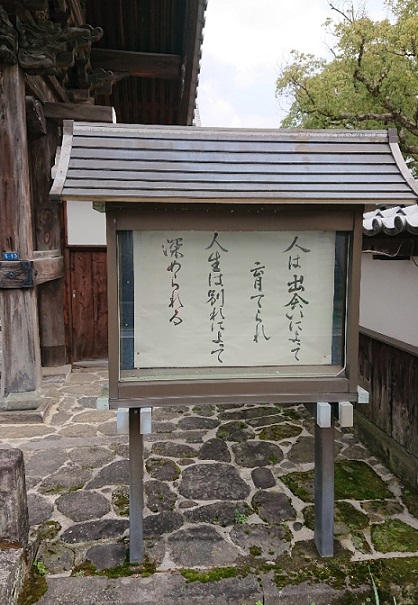 人は出会いによって
育てられ
人生は別れによって
深められる